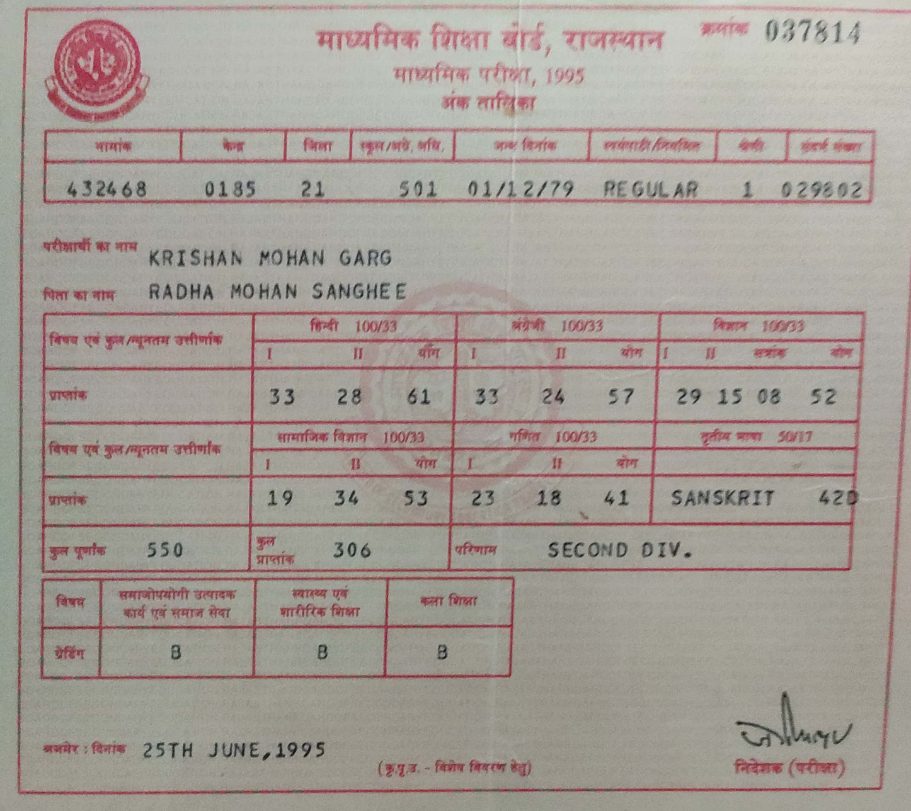 माध्यमिक शिक्षा बोर्ड, राजस्थान
क्रमांक 037814
माध्यमिक परीक्षा, 1995
अंक तालिका
नामांक केन्द्र जिला स्कूल/अग्रे. अधि. जन्म दिनांक स्वयंपाठी/नियमित श्रेणी संदर्भ संख्या
432468 0185 21 501 01/12/79 REGULAR 1 029802
परीक्षार्थी का नाम KRISHAN MOHAN GARG
पिता का नाम RADHA MOHAN SANGHEE
विषय एवं कुल/न्यूनतम उत्तीर्णांक हिन्दी 100/33 अंग्रेजी 100/33 विज्ञान 100/33
I II योग I II योग I II सत्रांक योग
प्राप्तांक 33 28 61 33 24 57 29 15 08 52
विषय एवं कुल/न्यूनतम उत्तीर्णांक सामाजिक विज्ञान 100/33 गणित 100/33 तृतीय भाषा 50/17
I II योग I II योग
प्राप्तांक 19 34 53 23 18 41 SANSKRIT 42D
कुल पूर्णांक 550 कुल प्राप्तांक 306 परिणाम SECOND DIV.
विषय समाजोपयोगी उत्पादक कार्य एवं समाज सेवा स्वास्थ्य एवं शारीरिक शिक्षा कला शिक्षा
ग्रेडिंग B B B
अजमेर : दिनांक 25TH JUNE,1995
(कृ.पृ.उ. - विशेष विवरण हेतु)
निदेशक (परीक्षा)